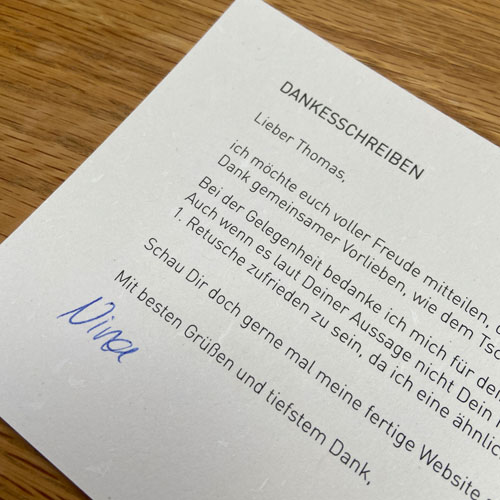 DANKESSCHREIBEN
Lieber Thomas,
ich möchte euch voller Freude mitteilen,
Dank gemeinsamer Vorlieben, wie dem
Bei der Gelegenheit bedanke ich mich für
Auch wenn es laut Deiner Aussage nicht Dein
1. Retusche zufrieden zu sein, da ich eine
Schau Dir doch gerne mal meine fertige Website
Mit besten Grüßen und tiefstem Dank,
Nina